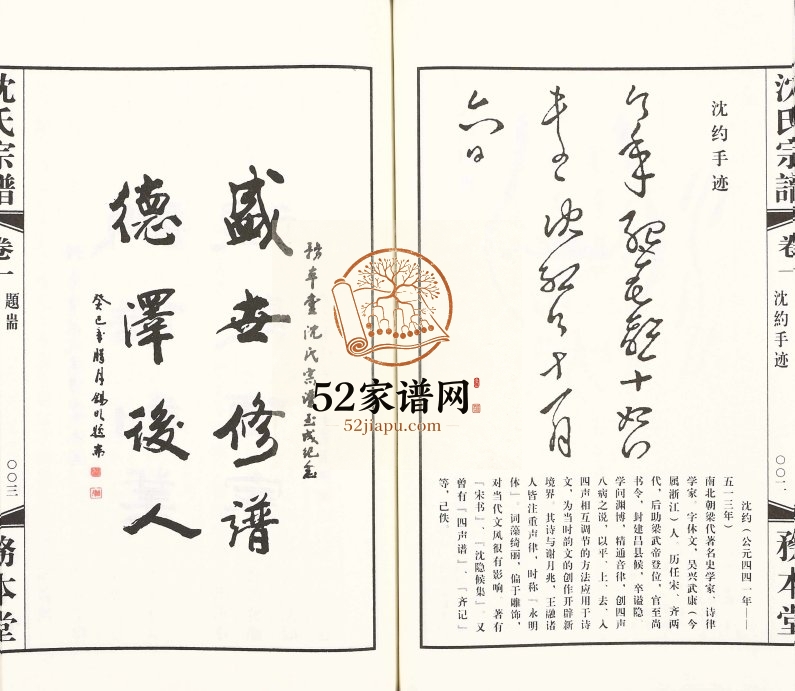 沈氏宗譜
卷一
沈約手迹
〇〇二
務本堂
沈约手迹
十一月
六日
沈约（公元四四一年——
五一三年）
南北朝梁代著名史学家、诗律
学家．字休文，吴兴武康（今
属浙江）人．历任宋、齐两
代，后助梁武帝登位，官至尚
书令，封建昌县候，卒谥隐．
学问渊博，精通音律，创四声
八病之说，以平、上、去、入
四声相互调节的方法应用于诗
文，为当时韵文的创作开辟新
境界．其诗与谢月兆、王融诸
人皆注重声律，时称「永明
体」．词藻绮丽，偏于雕饰，
对当代文风很有影响．著有
「宋书」、「沈隐候集」．又
曾有「四声谱」、「齐记」
等，已佚．
務本堂沈氏宗譜玉成纪念
盛世修譜
德澤後人
癸巳年臘月
沈氏宗譜
卷一
題耑
〇〇三
務本堂
52家谱网
52jiapu.com